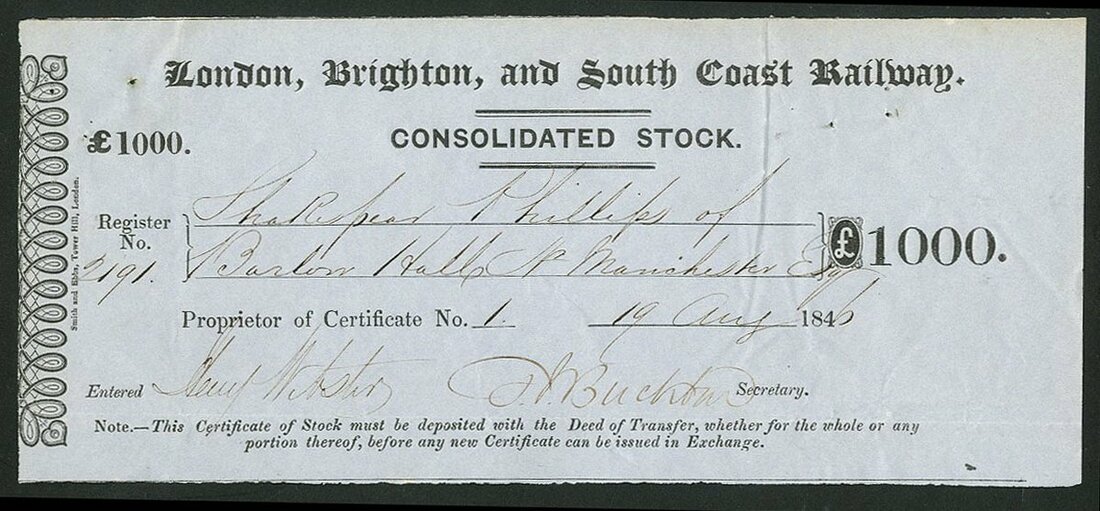 London, Brighton, and South Coast Railway.
£1000.
CONSOLIDATED STOCK.
Register No. 2191.
Shakespear Phillips of
Barlon Hall Nr Manchester Esqr
£1000.
Proprietor of Certificate No. 1. 19 Aug 1846
Entered Henry Webster Secretary.
Note.—This Certificate of Stock must be deposited with the Deed of Transfer, whether for the whole or any
portion thereof, before any new Certificate can be issued in Exchange.
Smith and Ebbs, Tower Hill, London.